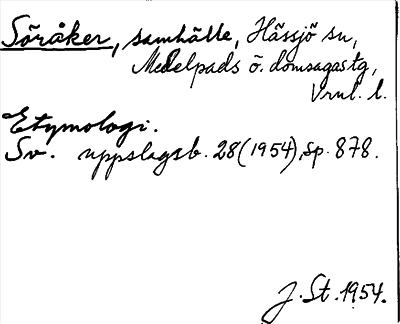 Söråker, samhälle, Hässjö sn,
Medelpads ö. domsagas tg,
Vnl. l.
Etymologi.
Sv. uppslagsb. 28 (1954), sp. 878.
J. St. 1954.